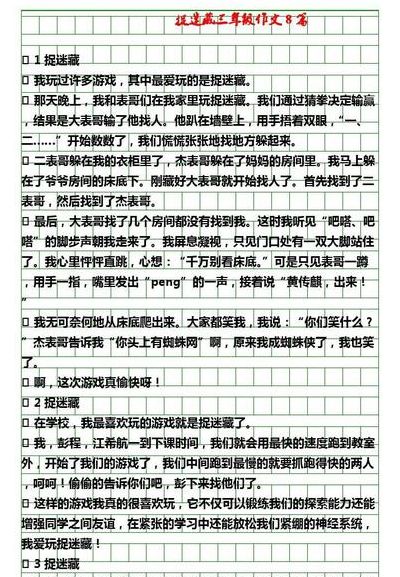 捉迷藏三年级作文8篇
1 捉迷藏
我玩过许多游戏，其中最爱玩的是捉迷藏。
那天晚上，我和表哥们在我家里玩捉迷藏。我们通过猜拳决定输赢
，结果是大表哥输了他找人。他趴在墙壁上，用手捂着双眼，“一、
二……”开始数数了，我们慌慌张张地找地方躲起来。
二表哥躲在我的衣柜里了，杰表哥躲在了妈妈的房间里。我马上躲
在了爷爷房间的床底下。刚藏好大表哥就开始找人了。首先找到了二
表哥，然后找到了杰表哥。
最后，大表哥找了几个房间都没有找到我。这时我听见“吧嗒、吧
嗒”的脚步声朝我走来了。我屏息凝视，只见门口处有一双大脚站住
了。我心里怦怦直跳，心想：“千万别看床底。”可是只见表哥一蹲
，用手一指，嘴里发出“peng”的一声，接着说“黄传麒，出来！
”
我无可奈何地从床底爬出来。大家都笑我，我说：“你们笑什么？
”杰表哥告诉我“你头上有蜘蛛网”啊，原来我成蜘蛛侠了，我也笑
了。
啊，这次游戏真愉快呀！
2 捉迷藏
在学校，我最喜欢玩的游戏就是捉迷藏了。
我，彭程，江希航一到下课时间，我们就会用最快的速度跑到教室
外，开始了我们的游戏了，我们中间跑到最慢的就要抓跑得快的两人
，呵呵！偷偷的告诉你们吧，彭下来找他们了。
这样的游戏我真的很喜欢玩，它不仅可以锻炼我们的探索能力还能
增强同学之间友谊，在紧张的学习中还能放松我们紧绷的神经系统，
我爱玩捉迷藏！
3 捉迷藏